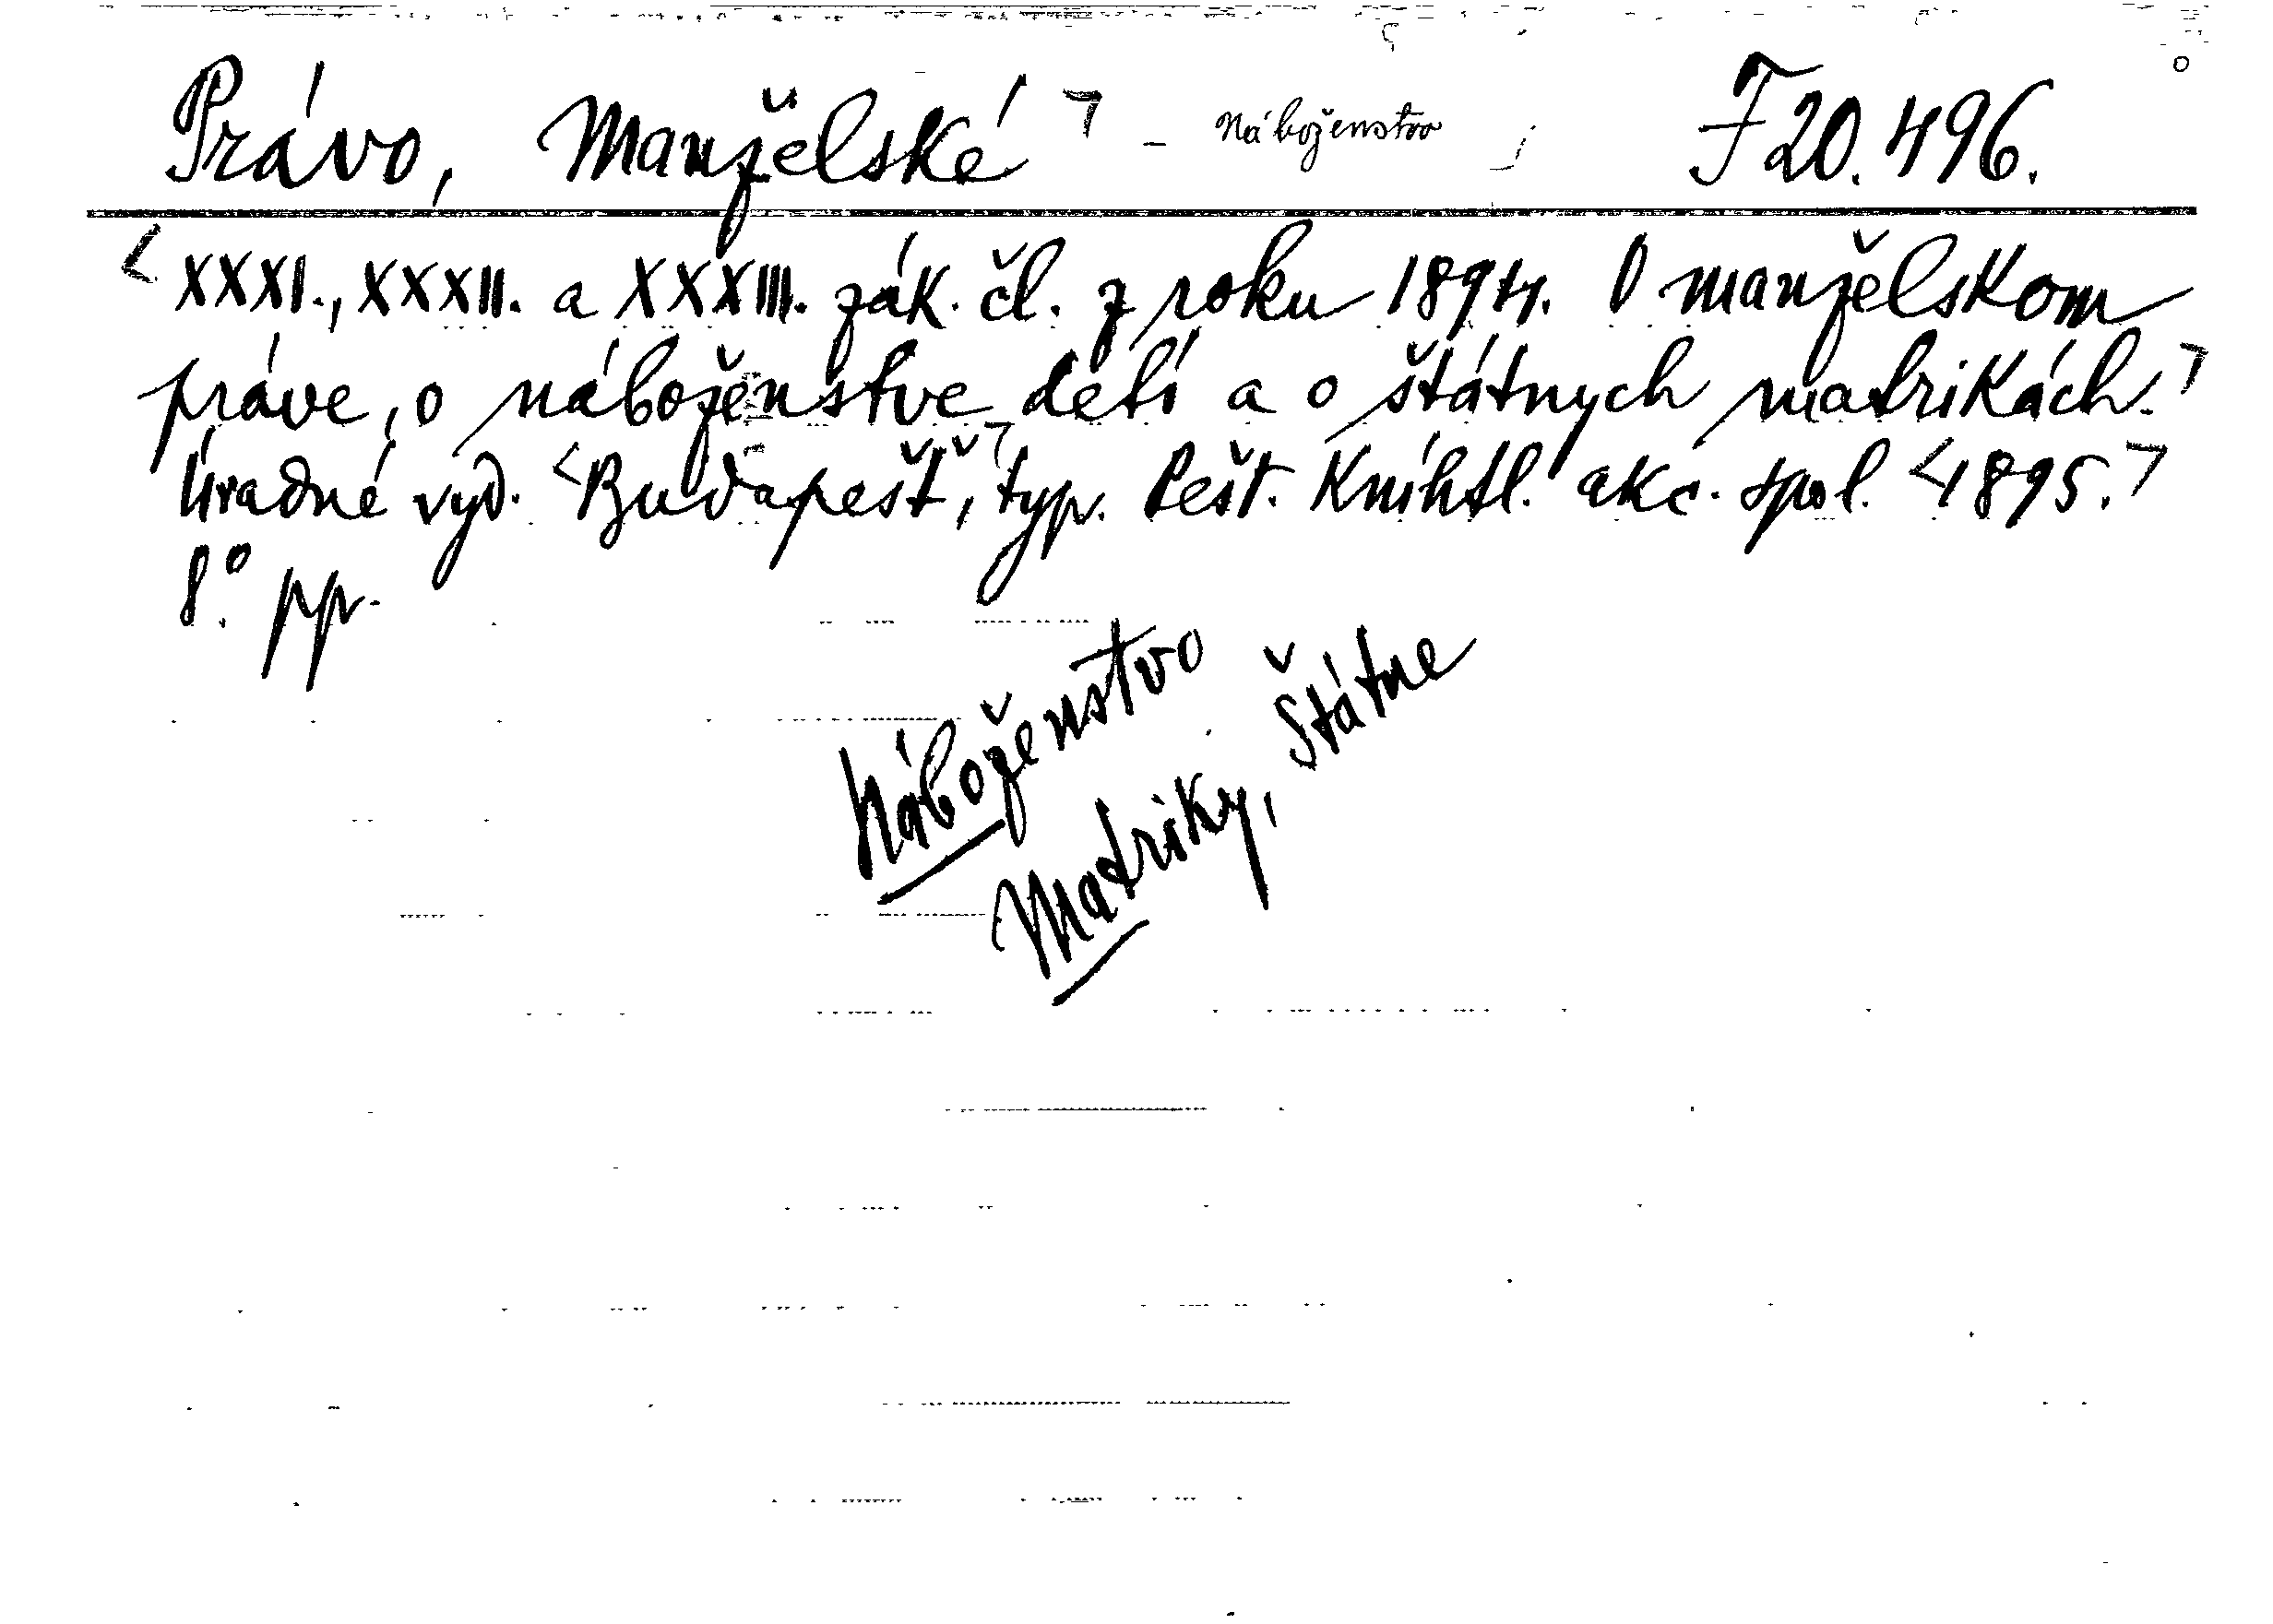 Právo, Manželské ⌝ – Náboženstvo F 20.496.
<XXXI., XXXII. a XXXIII. zák. čl. z roku 1894. O manželskom
práve, o náboženstve detí a o štátnych matrikách.⌝
Úradné vyd. <Budapešť,⌝ typ. Pešt. Kníhtl. akc. spol. <1895.⌝
8.° pp.
Náboženstvo
Matriky, Štátne